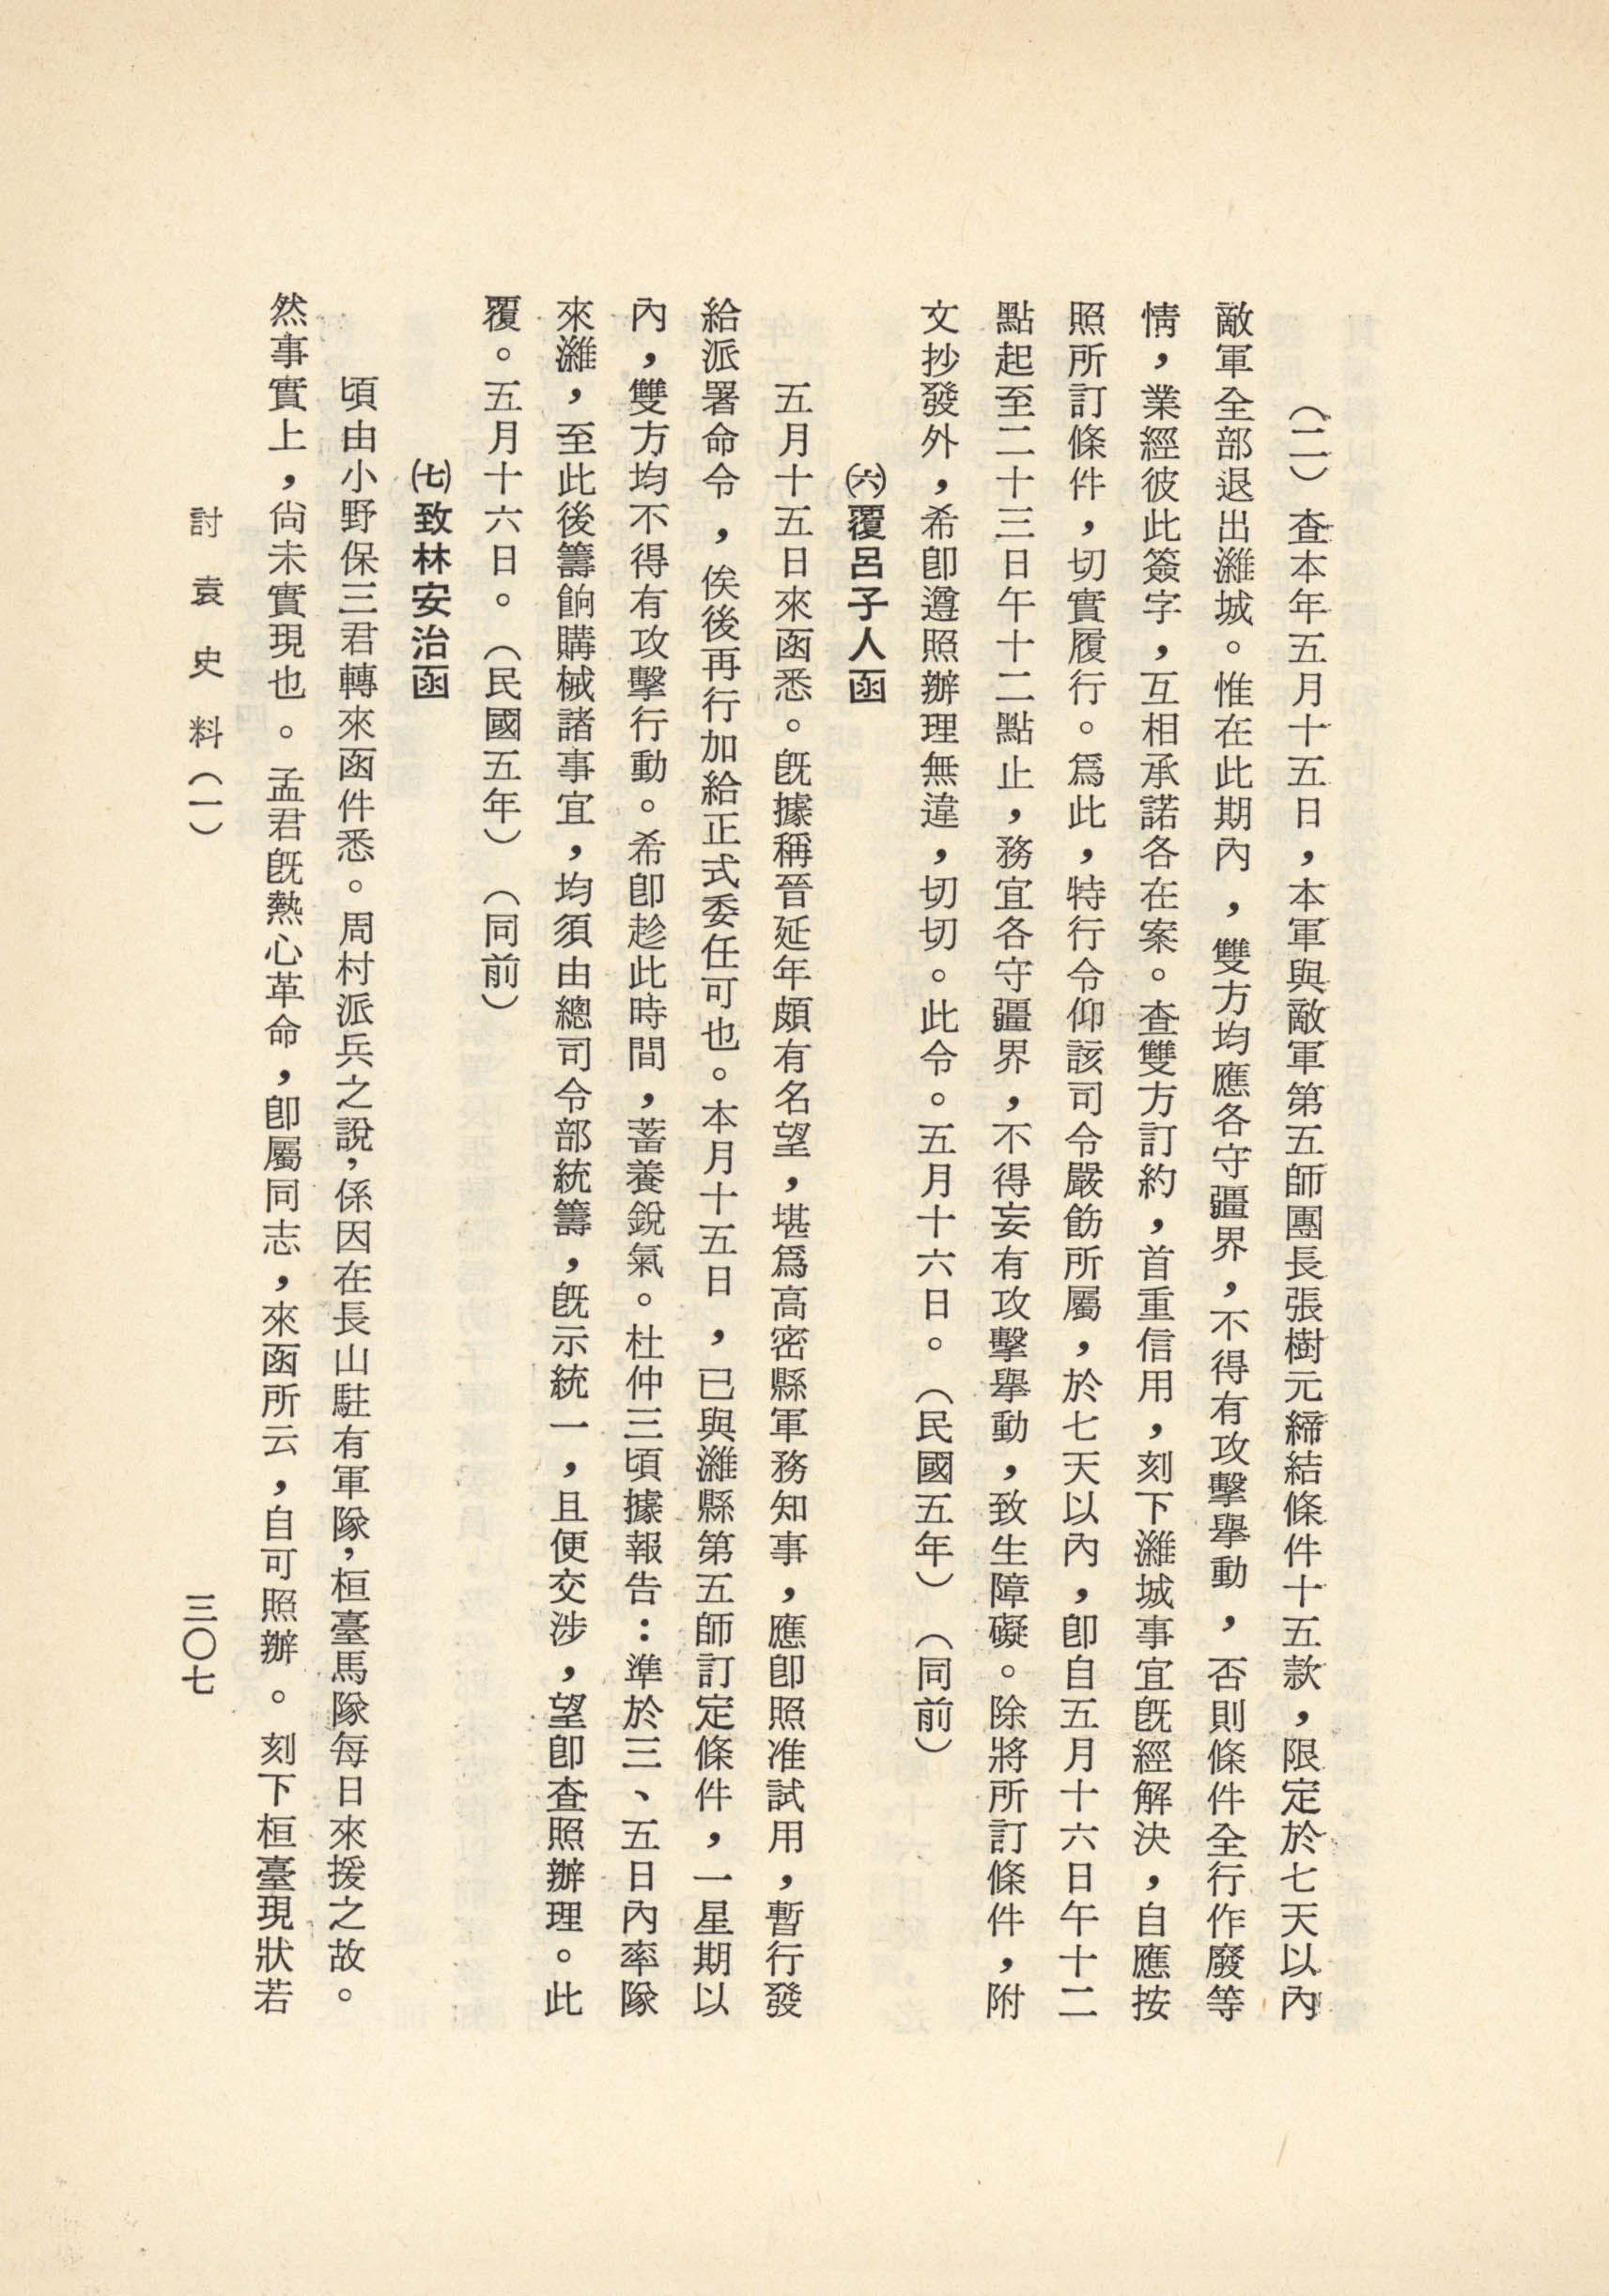 （二）查本年五月十五日，本軍與敵軍第五師團長張樹元締結條件十五款，限定於七天以內
敵軍全部退出濰城。惟在此期內，雙方均應各守疆界，不得有攻擊舉動，否則條件全行作廢等
情，業經彼此簽字，互相承諾各在案。查雙方訂約，首重信用，刻下濰城事宜既經解決，自應按
照所訂條件，切實履行。爲此，特行令仰該司令嚴飭所屬，於七天以內，卽自五月十六日午十二
點起至二十三日午十二點止，務宜各守疆界，不得妄有攻擊舉動，致生障礙。除將所訂條件，附
文抄發外，希卽遵照辦理無違，切切。此令。五月十六日。（民國五年）（同前）
㈥覆呂子人函
五月十五日來函悉。既據稱晉延年頗有名望，堪爲高密縣軍務知事，應卽照准試用，暫行發
給派署命令，俟後再行加給正式委任可也。本月十五日，已與濰縣第五師訂定條件，一星期以
內，雙方均不得有攻擊行動。希卽趁此時間，蓄養銳氣。杜仲三頃據報告：準於三、五日內率隊
來濰，至此後籌餉購械諸事宜，均須由總司令部統籌，既示統一，且便交涉，望卽查照辦理。此
覆。五月十六日。（民國五年）（同前）
㈦致林安治函
頃由小野保三君轉來函件悉。周村派兵之說，係因在長山駐有軍隊，桓臺馬隊每日來援之故。
然事實上，尙未實現也。孟君既熱心革命，卽屬同志，來函所云，自可照辦。刻下桓臺現狀若
討袁史料（一）
三〇七